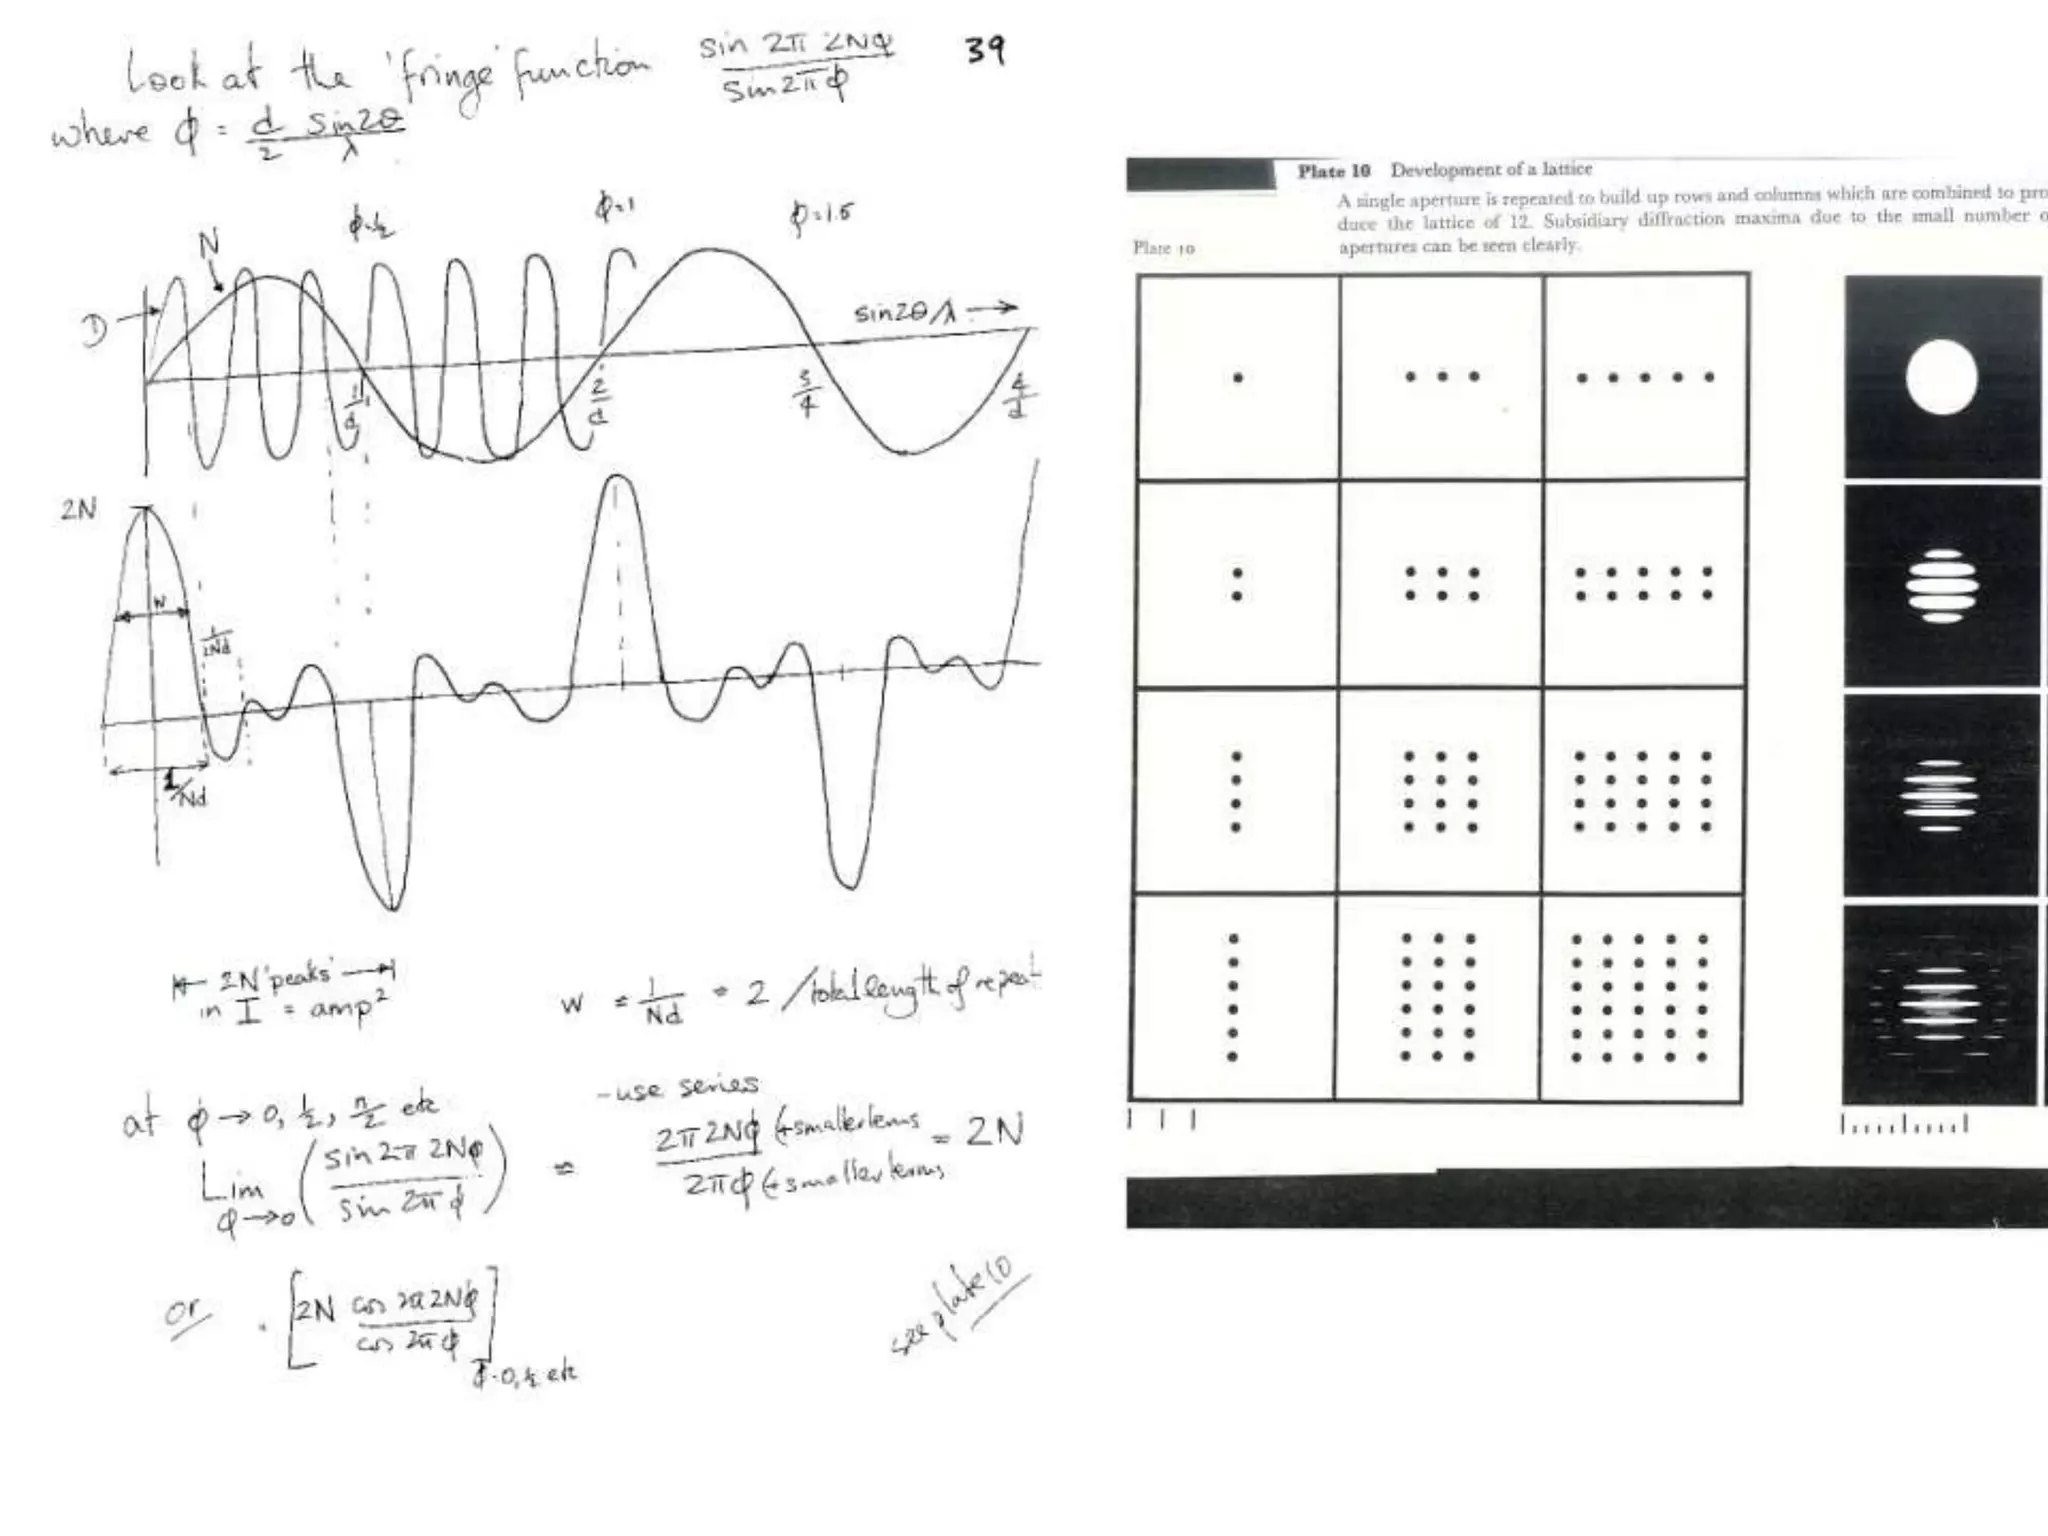 Look at the 'fringe' function sin 2π 2Nφ / sin 2π φ 39
where φ = d/2 sin2θ/λ
φ=½ φ=1 φ=1.5
N
D
sin2θ/λ →
1/d 2/d 3/4 4/d
2N
W
1/2Nd
1/Nd
|← 2N 'peaks' →|
in I = amp²
W = 1/Nd = 2 / total length of repeat
at φ → 0, ½, n/2 etc
- use series
Lim φ→0 ( sin 2π 2Nφ / sin 2π φ ) = 2π 2Nφ (+ smaller terms / 2π φ (+ smaller terms = 2N
or [ 2N cos 2π 2Nφ / cos 2π φ ] φ=0, ½ etc
see plate 10
Plate 10 Development of a lattice
A single aperture is repeated to build up rows and columns which are combined to pro
duce the lattice of 12. Subsidiary diffraction maxima due to the small number o
apertures can be seen clearly.
Plate 10